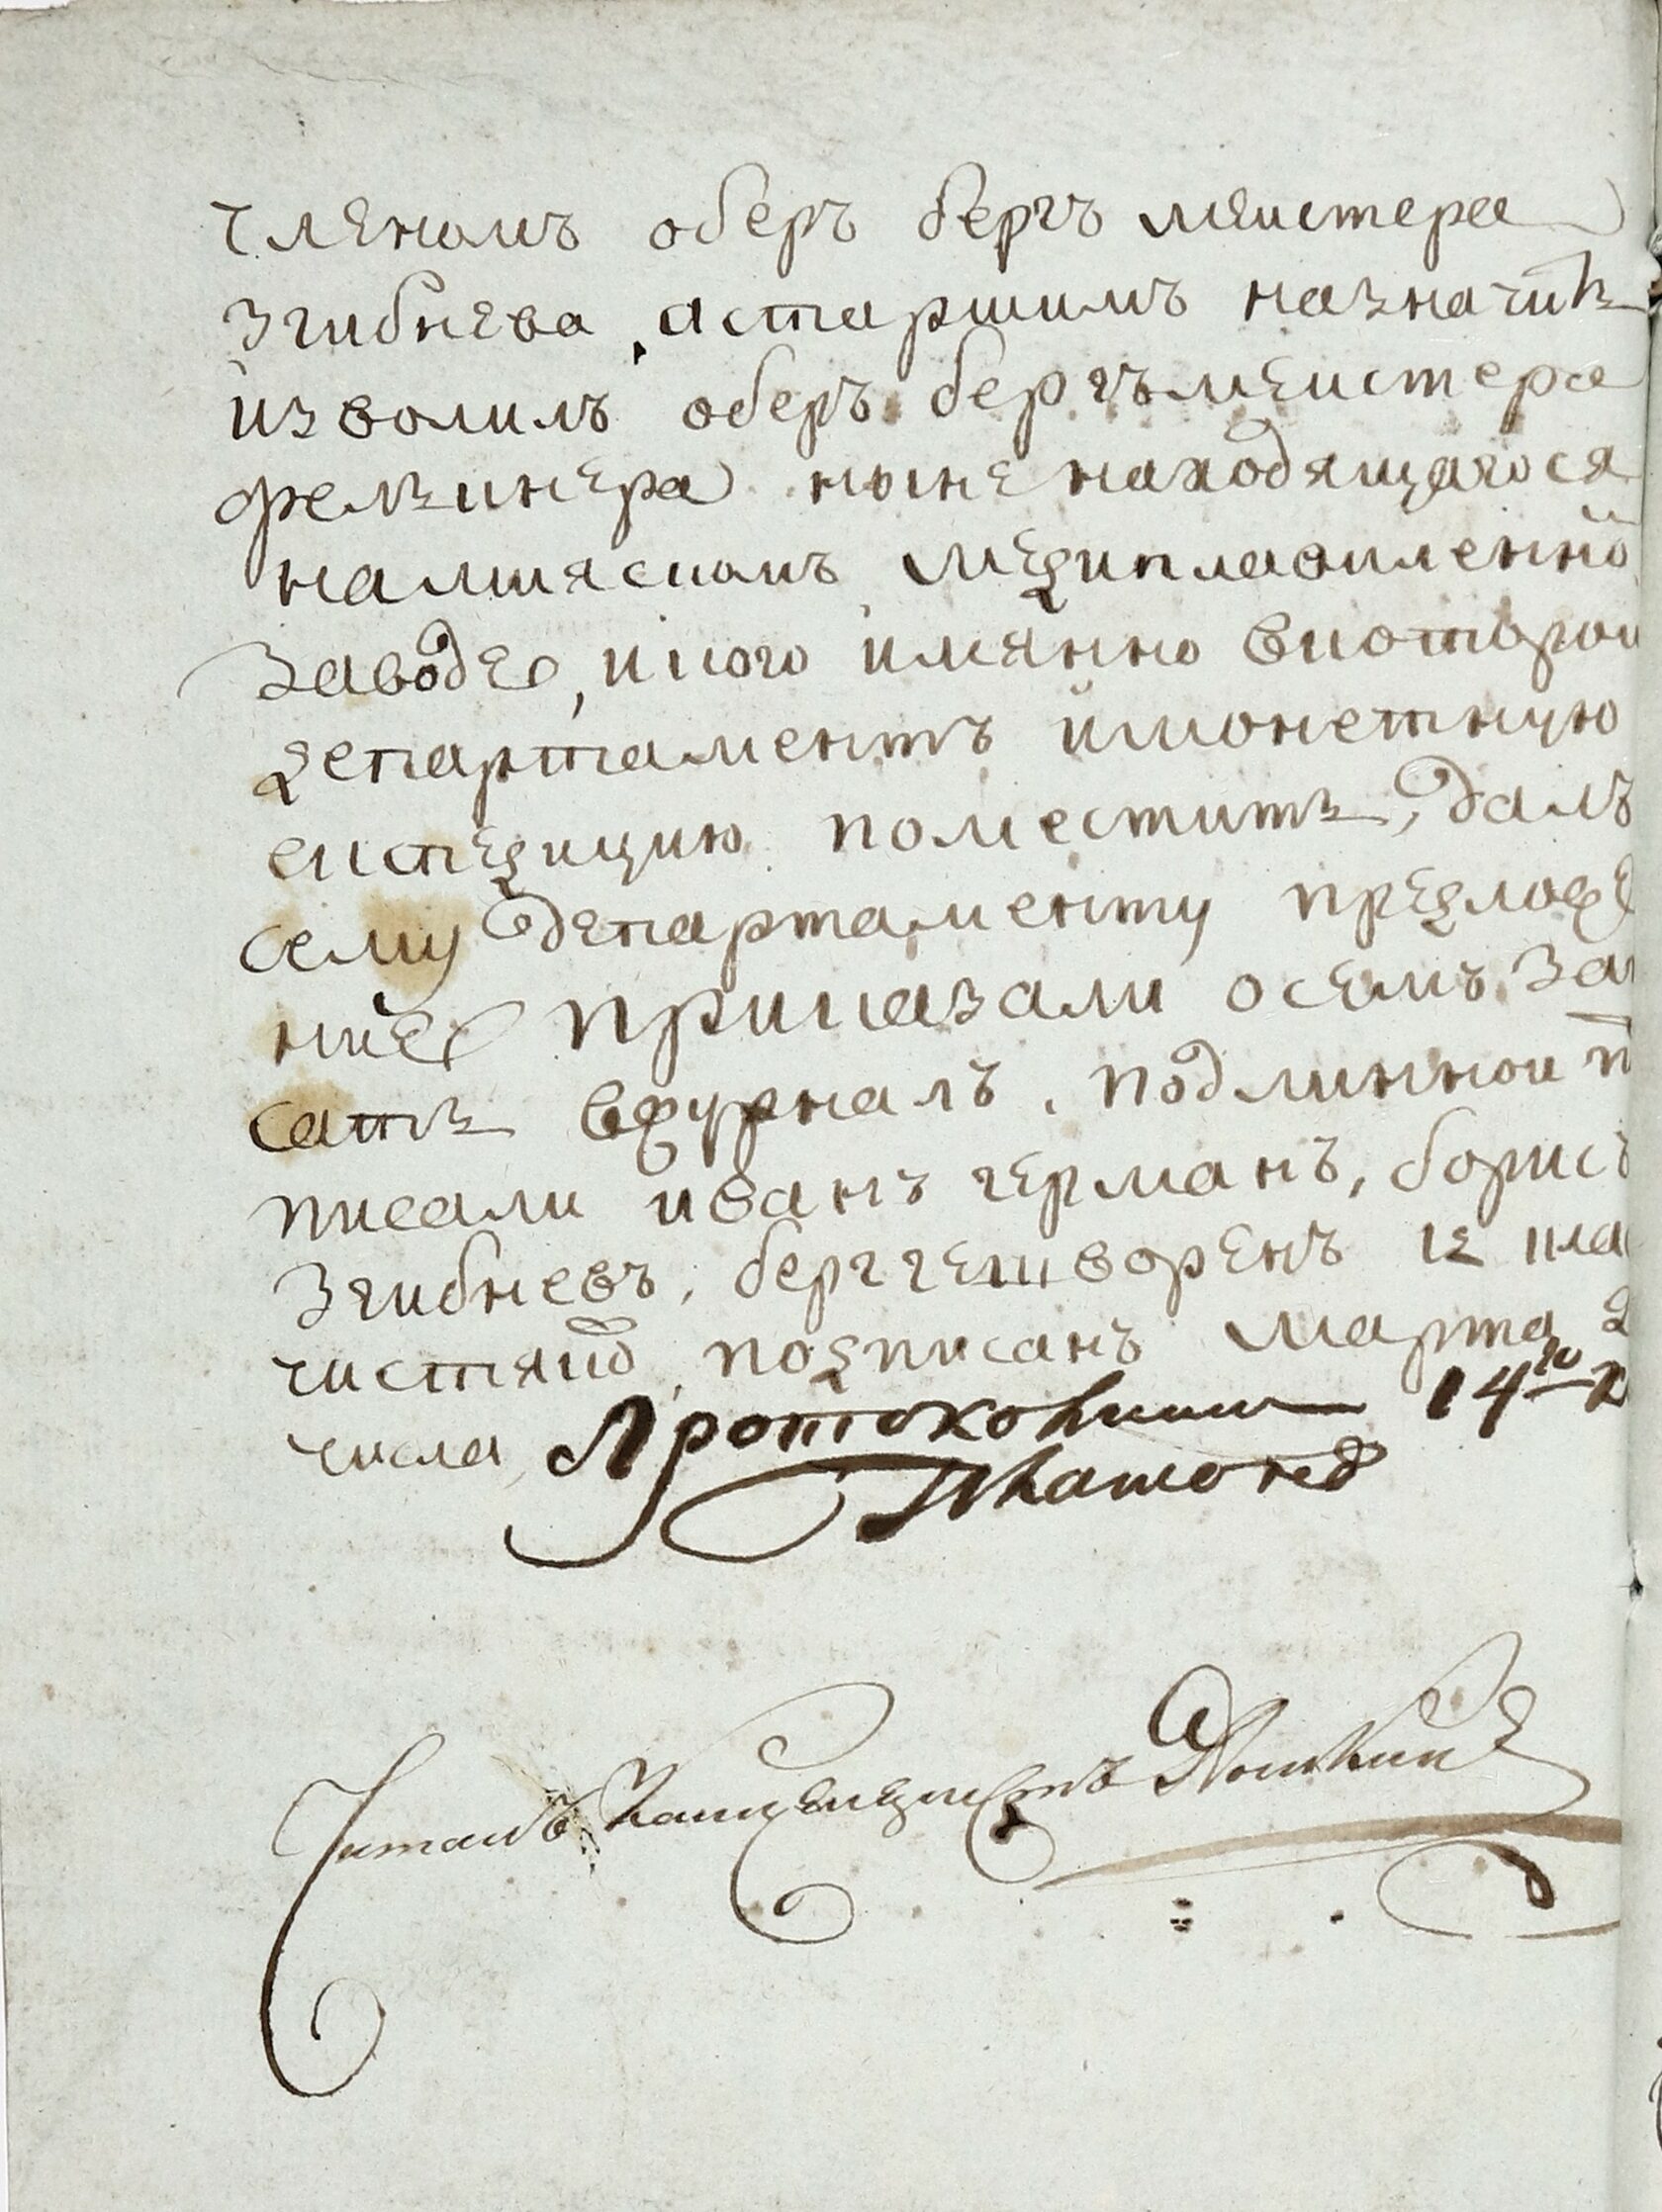 членомъ оберъ бергъ меистера
Згибнева, астаршимъ назначить
изволилъ оберъ бергъмеистера
фелкнера ныне находящагося
намияскомъ медиплавиленно
заводе, икого имянно вкоторои
департаментъ имонетную
експедицию поместить, далъ
сему департаменту предложе
ние приказали осемъ зап
сать вжурналъ. подлиннои п
писали иванъ германъ, борисъ
Згибневъ, берггешворенъ
чистяков подписанъ марта
числа Протоколист 14го
Платонов
Читалъ Канцеляристъ